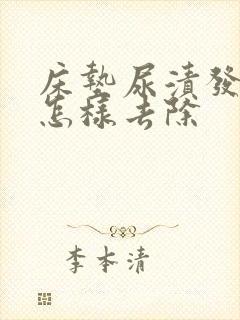 床墊尿漬發
怎樣去除
李本清